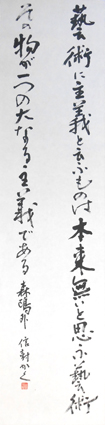 藝術に主義と云ふものは本来無いと思ふ藝術
その物が一つの大なる主義である 森鴎外 信軒かく